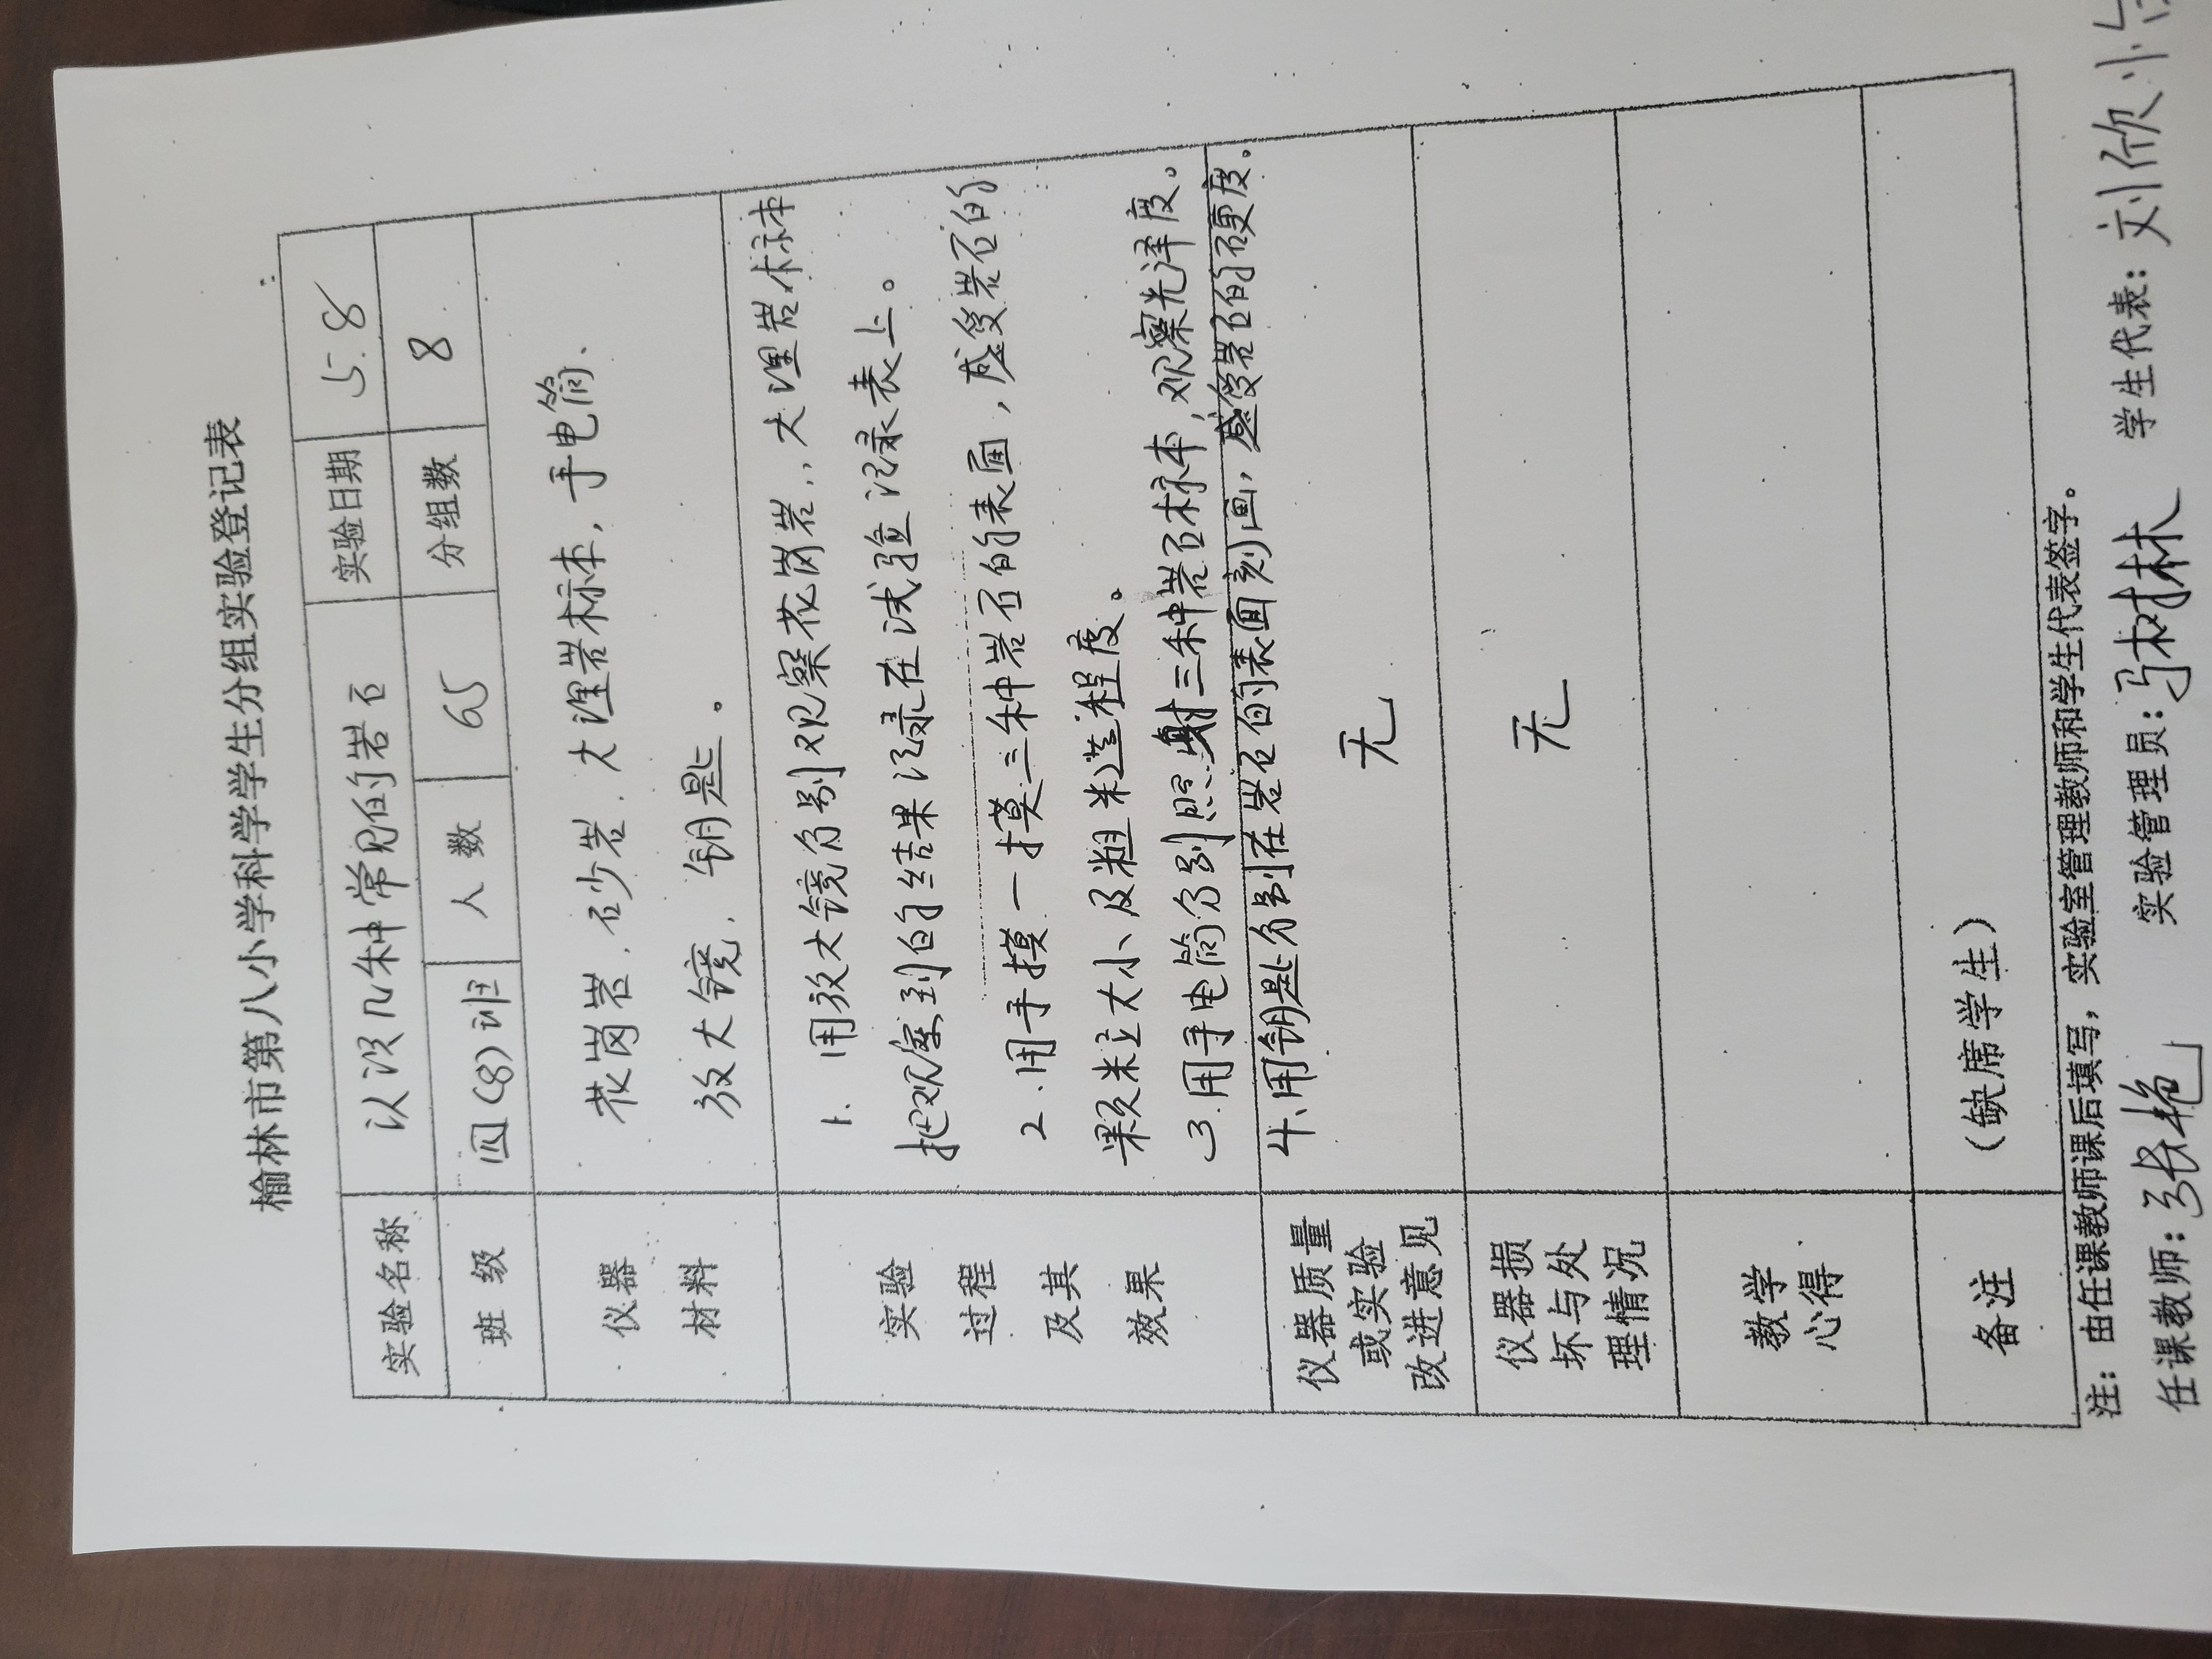 榆林市第八小学科学学生分组实验登记表
实验名称 认识几种常见的岩石 实验日期 5.8
班级 四(8)班 人数 65 分组数 8
仪器
材料
花岗岩、砂岩、大理岩标本,手电筒、
放大镜、钥匙。
实验
过程
及其
效果
1. 用放大镜分别观察花岗岩,,大理岩标本
把观察到的结果记录在试验记录表上。
2.用手摸一摸三种岩石的表面,感受岩石的
颗粒大小及粗糙程度。
3.用手电筒分别照射三种岩石标本,观察光泽度。
4.用钥匙分别在岩石的表面刻画,感受岩石的硬度。
仪器质量
或实验
改进意见
无
仪器损
坏与处
理情况
无
教学
心得
备注 (缺席学生)
注:由任课教师课后填写,实验室管理教师和学生代表签字。
任课教师:张艳 实验管理员:马林林 学生代表:刘欣